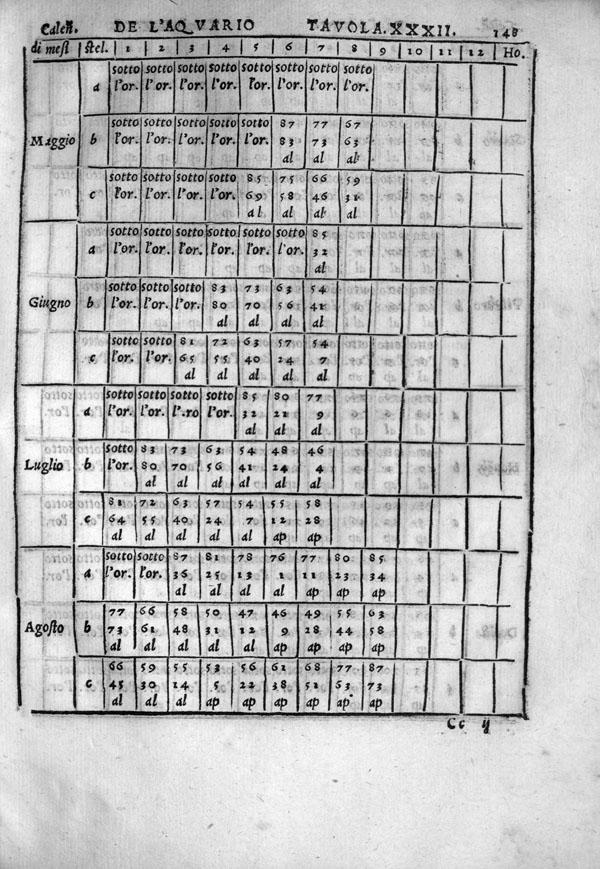 Caleñ. DE L'AQVARIO TAVOLA.XXXII. 148
di mesi stel. 1 2 3 4 5 6 7 8 9 10 11 12 Ho.
sotto sotto sotto sotto sotto sotto sotto sotto
a l'or. l'or. l'or. l'or. l'or. l'or. l'or. l'or.
sotto sotto sotto sotto sotto 87 77 67
Maggio b l'or. l'or. l'or. l'or. l'or. 83 73 63
al al al
sotto sotto sotto sotto 85 75 66 59
c l'or. l'or. l'or. l'or. 69 58 46 31
al al al al
sotto sotto sotto sotto sotto sotto 85
a l'or. l'or. l'or. l'or. l'or. l'or. 32
al
sotto sotto sotto 83 73 63 54
Giugno b l'or. l'or. l'or. 80 70 56 41
al al al al
sotto sotto 81 72 63 57 54
c l'or. l'or. 65 55 40 24 7
al al al al al
sotto sotto sotto sotto 85 80 77
a l'or. l'or. l'.ro l'or. 32 21 9
al al al
sotto 83 73 63 54 48 46
Luglio b l'or. 80 70 56 41 24 4
al al al al al al
81 72 63 57 54 55 58
c 64 55 40 24 7 12 28
al al al al al ap ap
sotto sotto 87 81 78 76 77 80 85
a l'or. l'or. 36 25 13 1 11 23 34
al al al al ap ap ap
77 66 58 50 47 46 49 55 63
Agosto b 73 61 48 31 12 9 28 44 58
al al al al al ap ap ap ap
66 59 55 53 56 61 68 77 87
c 45 30 14 5 22 38 51 63 73
al al al ap ap ap ap ap ap
Cc ij